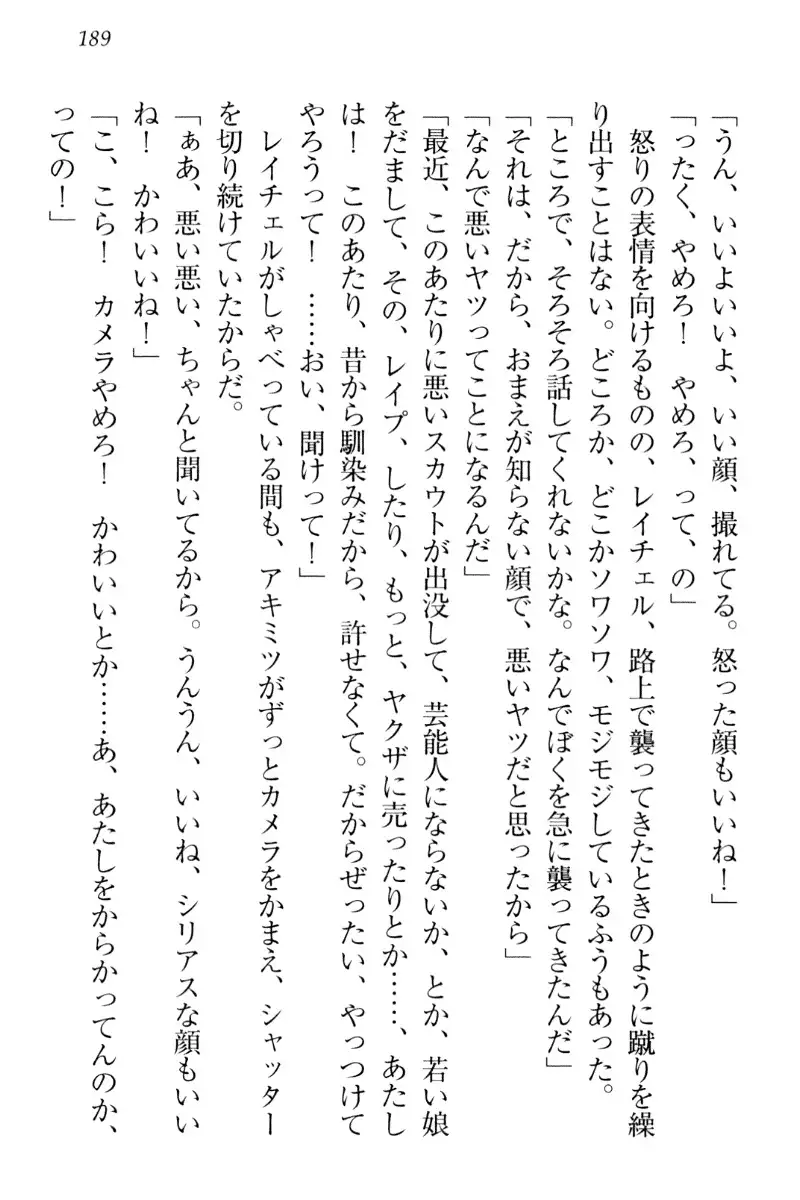 189
「うん、いいよいいよ、いい顔、撮れてる。怒った顔もいいね！」
「ったく、やめろ！　やめろ、って、の」
　怒りの表情を向けるものの、レイチェル、路上で襲ってきたときのように蹴りを繰
り出すことはない。どころか、どこかソワソワ、モジモジしているふうもあった。
「ところで、そろそろ話してくれないかな。なんでぼくを急に襲ってきたんだ」
「それは、だから、おまえが知らない顔で、悪いヤツだと思ったから」
「なんで悪いヤツってことになるんだ」
「最近、このあたりに悪いスカウトが出没して、芸能人にならないか、とか、若い娘
をだまして、その、レイプ、したり、もっと、ヤクザに売ったりとか……、あたし
は！　このあたり、昔から馴染みだから、許せなくて。だからぜったい、やっつけて
やろうって！　……おい、聞けって！」
　レイチェルがしゃべっている間も、アキミツがずっとカメラをかまえ、シャッター
を切り続けていたからだ。
「ぁあ、悪い悪い、ちゃんと聞いてるから。うんうん、いいね、シリアスな顔もいい
ね！　かわいいね！」
「こ、こら！　カメラやめろ！　かわいいとか……あ、あたしをからかってんのか、
っての！」